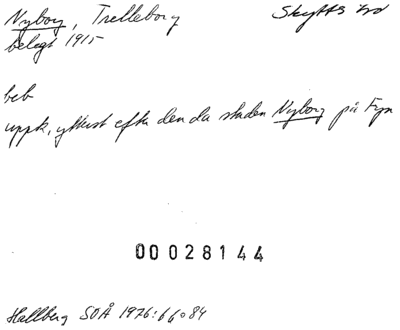 Nyborg, Trelleborg Skytts hd
belagt 1915
beb
uppk, ytterst efter den da staden Nyborg på Fyn
00028144
Hallberg SOÅ 1976:66o84